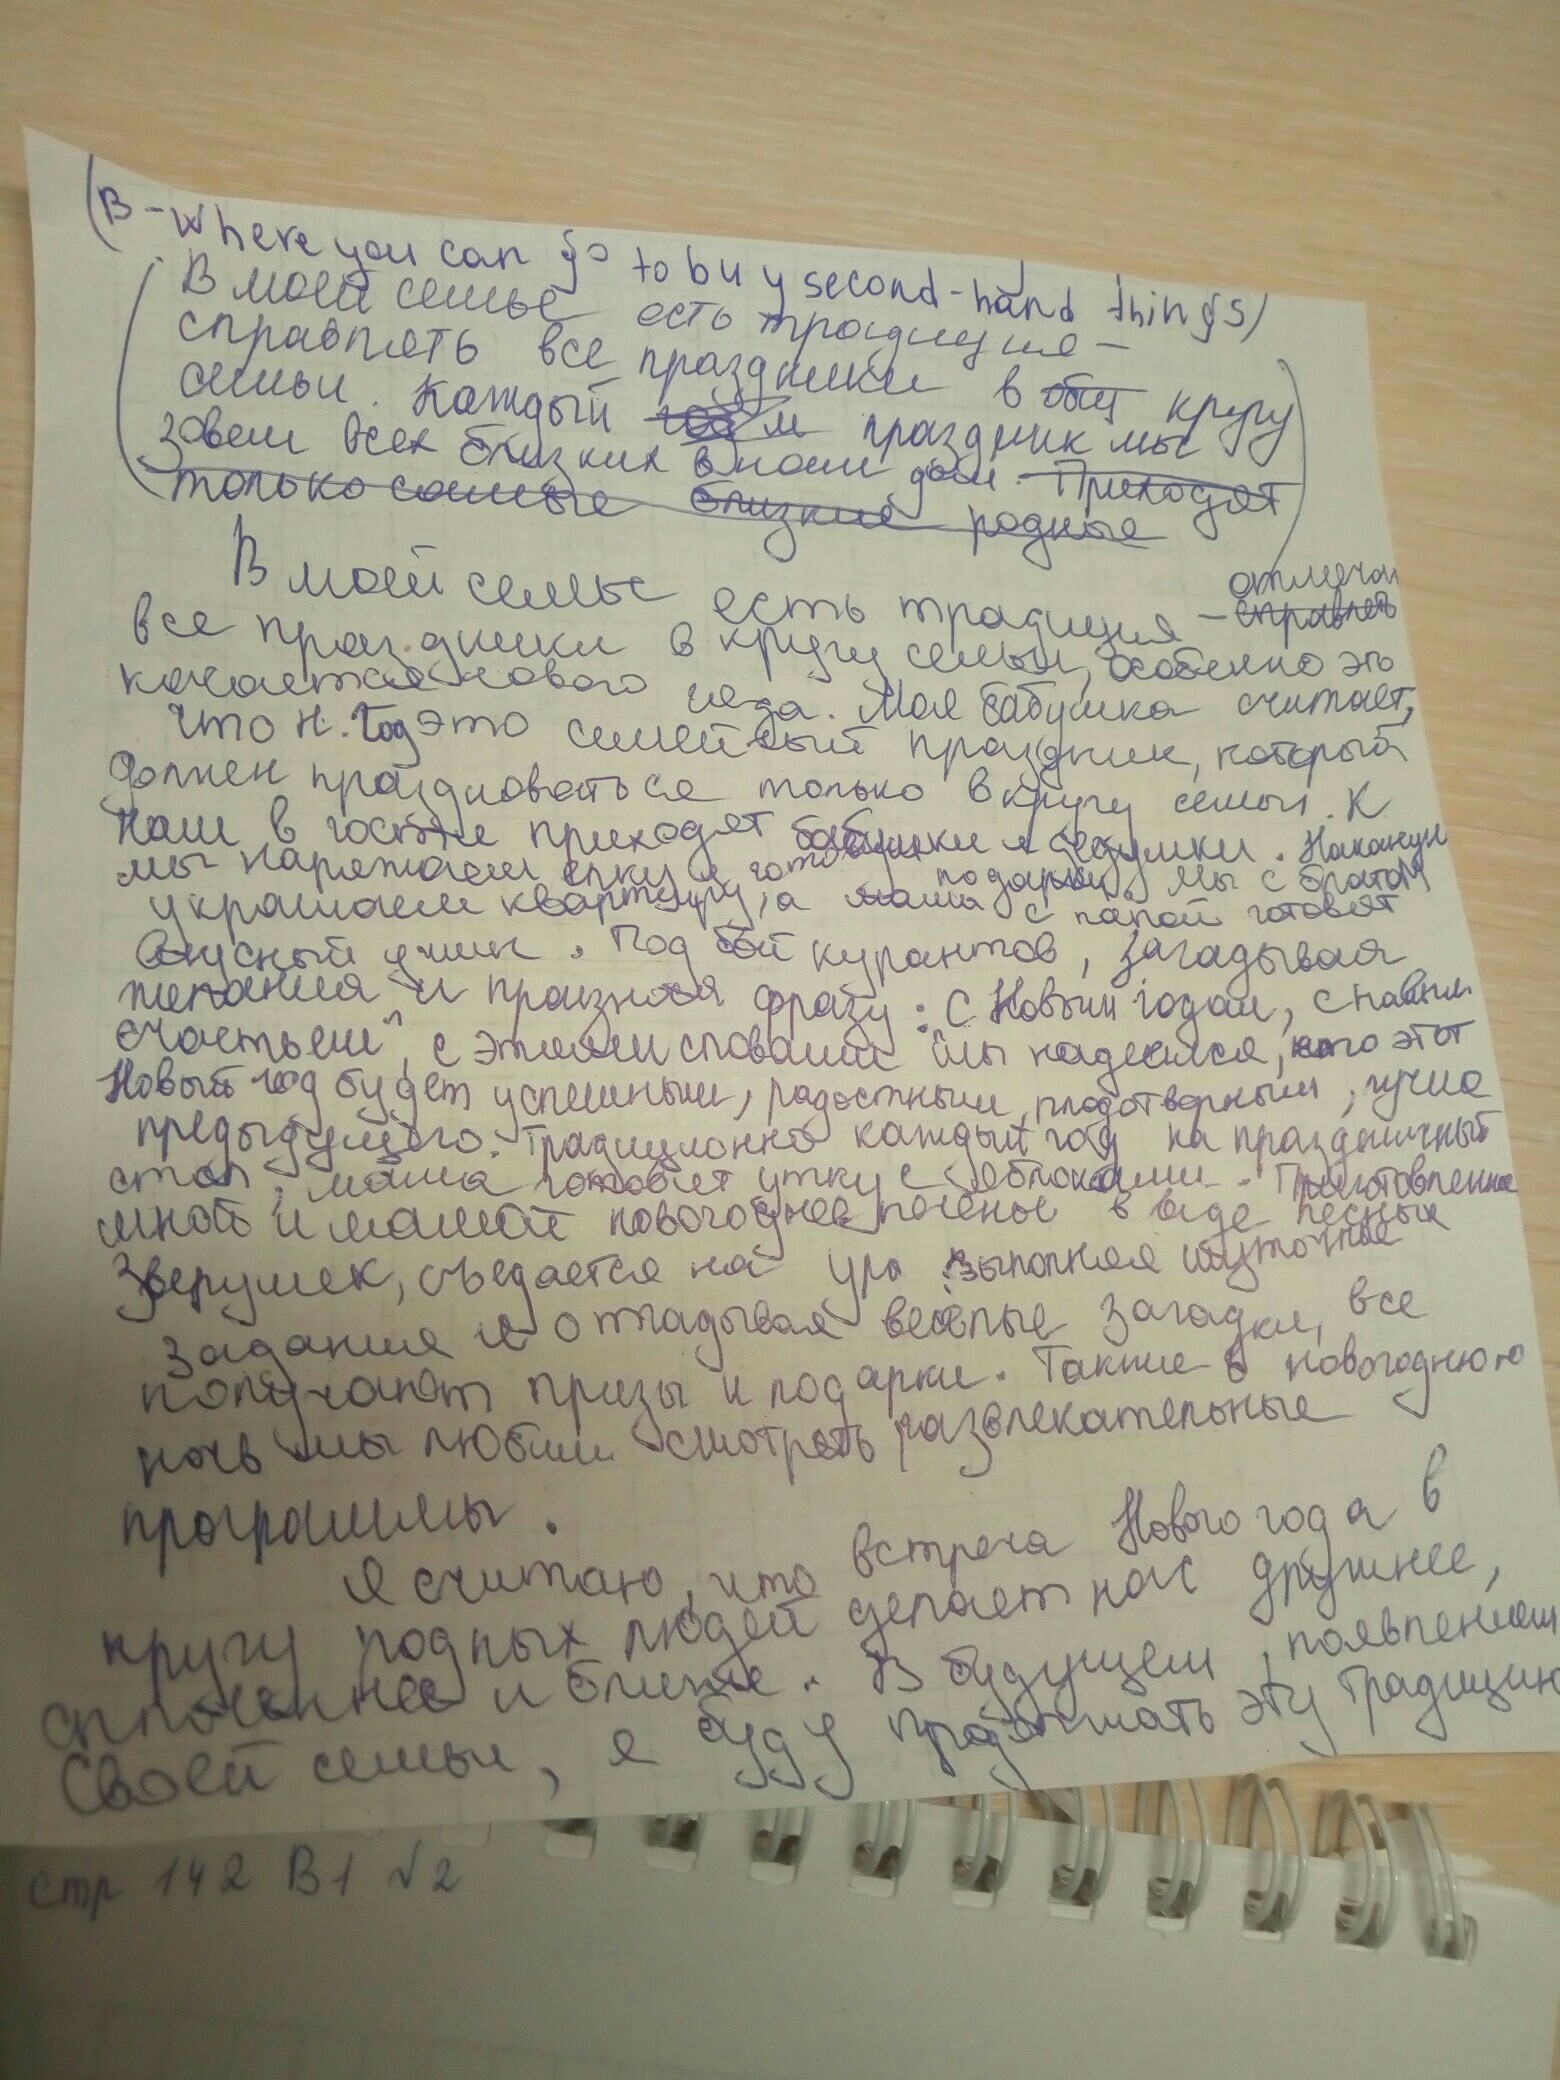 (B - Where you can go to buy second-hand things)
(В моей семье есть традиция -
справлять все праздники в общ кругу
семьи. Каждый праздник мы
зовем всех близких в наш дом. Приходят
только самые близкие родные)
В моей семье есть традиция - справлять отмечать
все праздники в кругу семьи, особенно это
касается нового года. Моя бабушка считает,
что Н. Год это семейный праздник, который
должен праздноваться только в кругу семьи. К
нам в гости приходят бабушки и дедушки. Накануне
мы наряжаем ёлку и готовим подарки, мы с братом
украшаем квартиру, а мама с папой готовят
вкусный ужин. Под бой курантов, загадывая
желания и произнося фразу: С Новым годом, с новым
счастьем", с этими словами мы надеемся, что этот
Новый год будет успешным, радостным, плодотворным, лучше
предыдущего. Традиционно каждый год на праздничный
стол, мама готовит утку с яблоками. Приготовленное
мной и мамой новогоднее печенье в виде лесных
зверушек, съедается на ура. Выполняя шуточные
задания и отгадывая весёлые загадки, все
получают призы и подарки. Также в новогоднюю
ночь мы любим смотреть развлекательные
программы.
Я считаю, что встреча Нового года в
кругу родных людей делает нас дружнее,
сплоченнее и ближе. В будущем, появлением
своей семьи, я буду продолжать эту традицию
стр 142 В1 √2